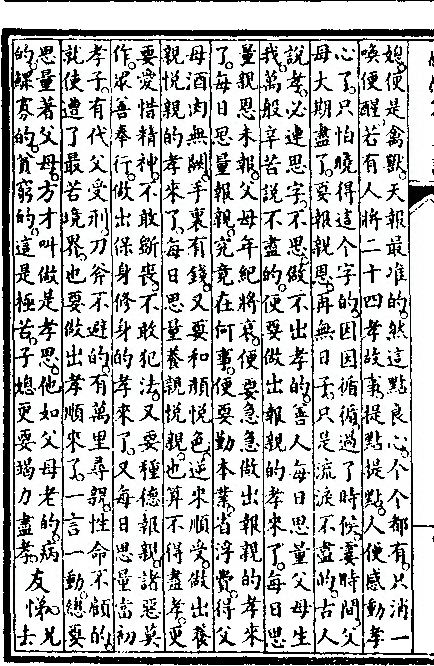 媳便是禽獸天報最准的然這點良心个个都有只消一
喚便醒若有人將二十四孝故事提點提點人便感動孝
心了只怕曉得這个字的因因循循過了時候霎時間父
母大期盡了要報親恩再無日子只是流淚不盡的古人
說孝必連思字不思做不出孝的善人每日思量父母生
我萬般辛苦說不盡的便要做出報親的孝來了每日思
量親恩未報父母年紀將衰便要急急做出報親的孝來
了每日思量報親究竟在何事便要勤本業省浮費得父
母酒肉無關手裏有錢又要和顏悅色逆來順受做出養
親悅親的孝來了每日思量養親悅親也算不得盡孝更
要愛惜精神不敢斲喪不敢犯法又要種德報親諸惡莫
作眾善奉行做出保身修身的孝來了又每日思量當初
孝子有代父受刑刀斧不避的有萬里尋親性命不顧的
就使遭了最苦境界也要做出孝順來了一言一動總要
思量著父母方才叫做是孝思他如父母老的病
的鰥寡的貧窮的這是極苦子媳更要竭力盡孝 友悌 兄